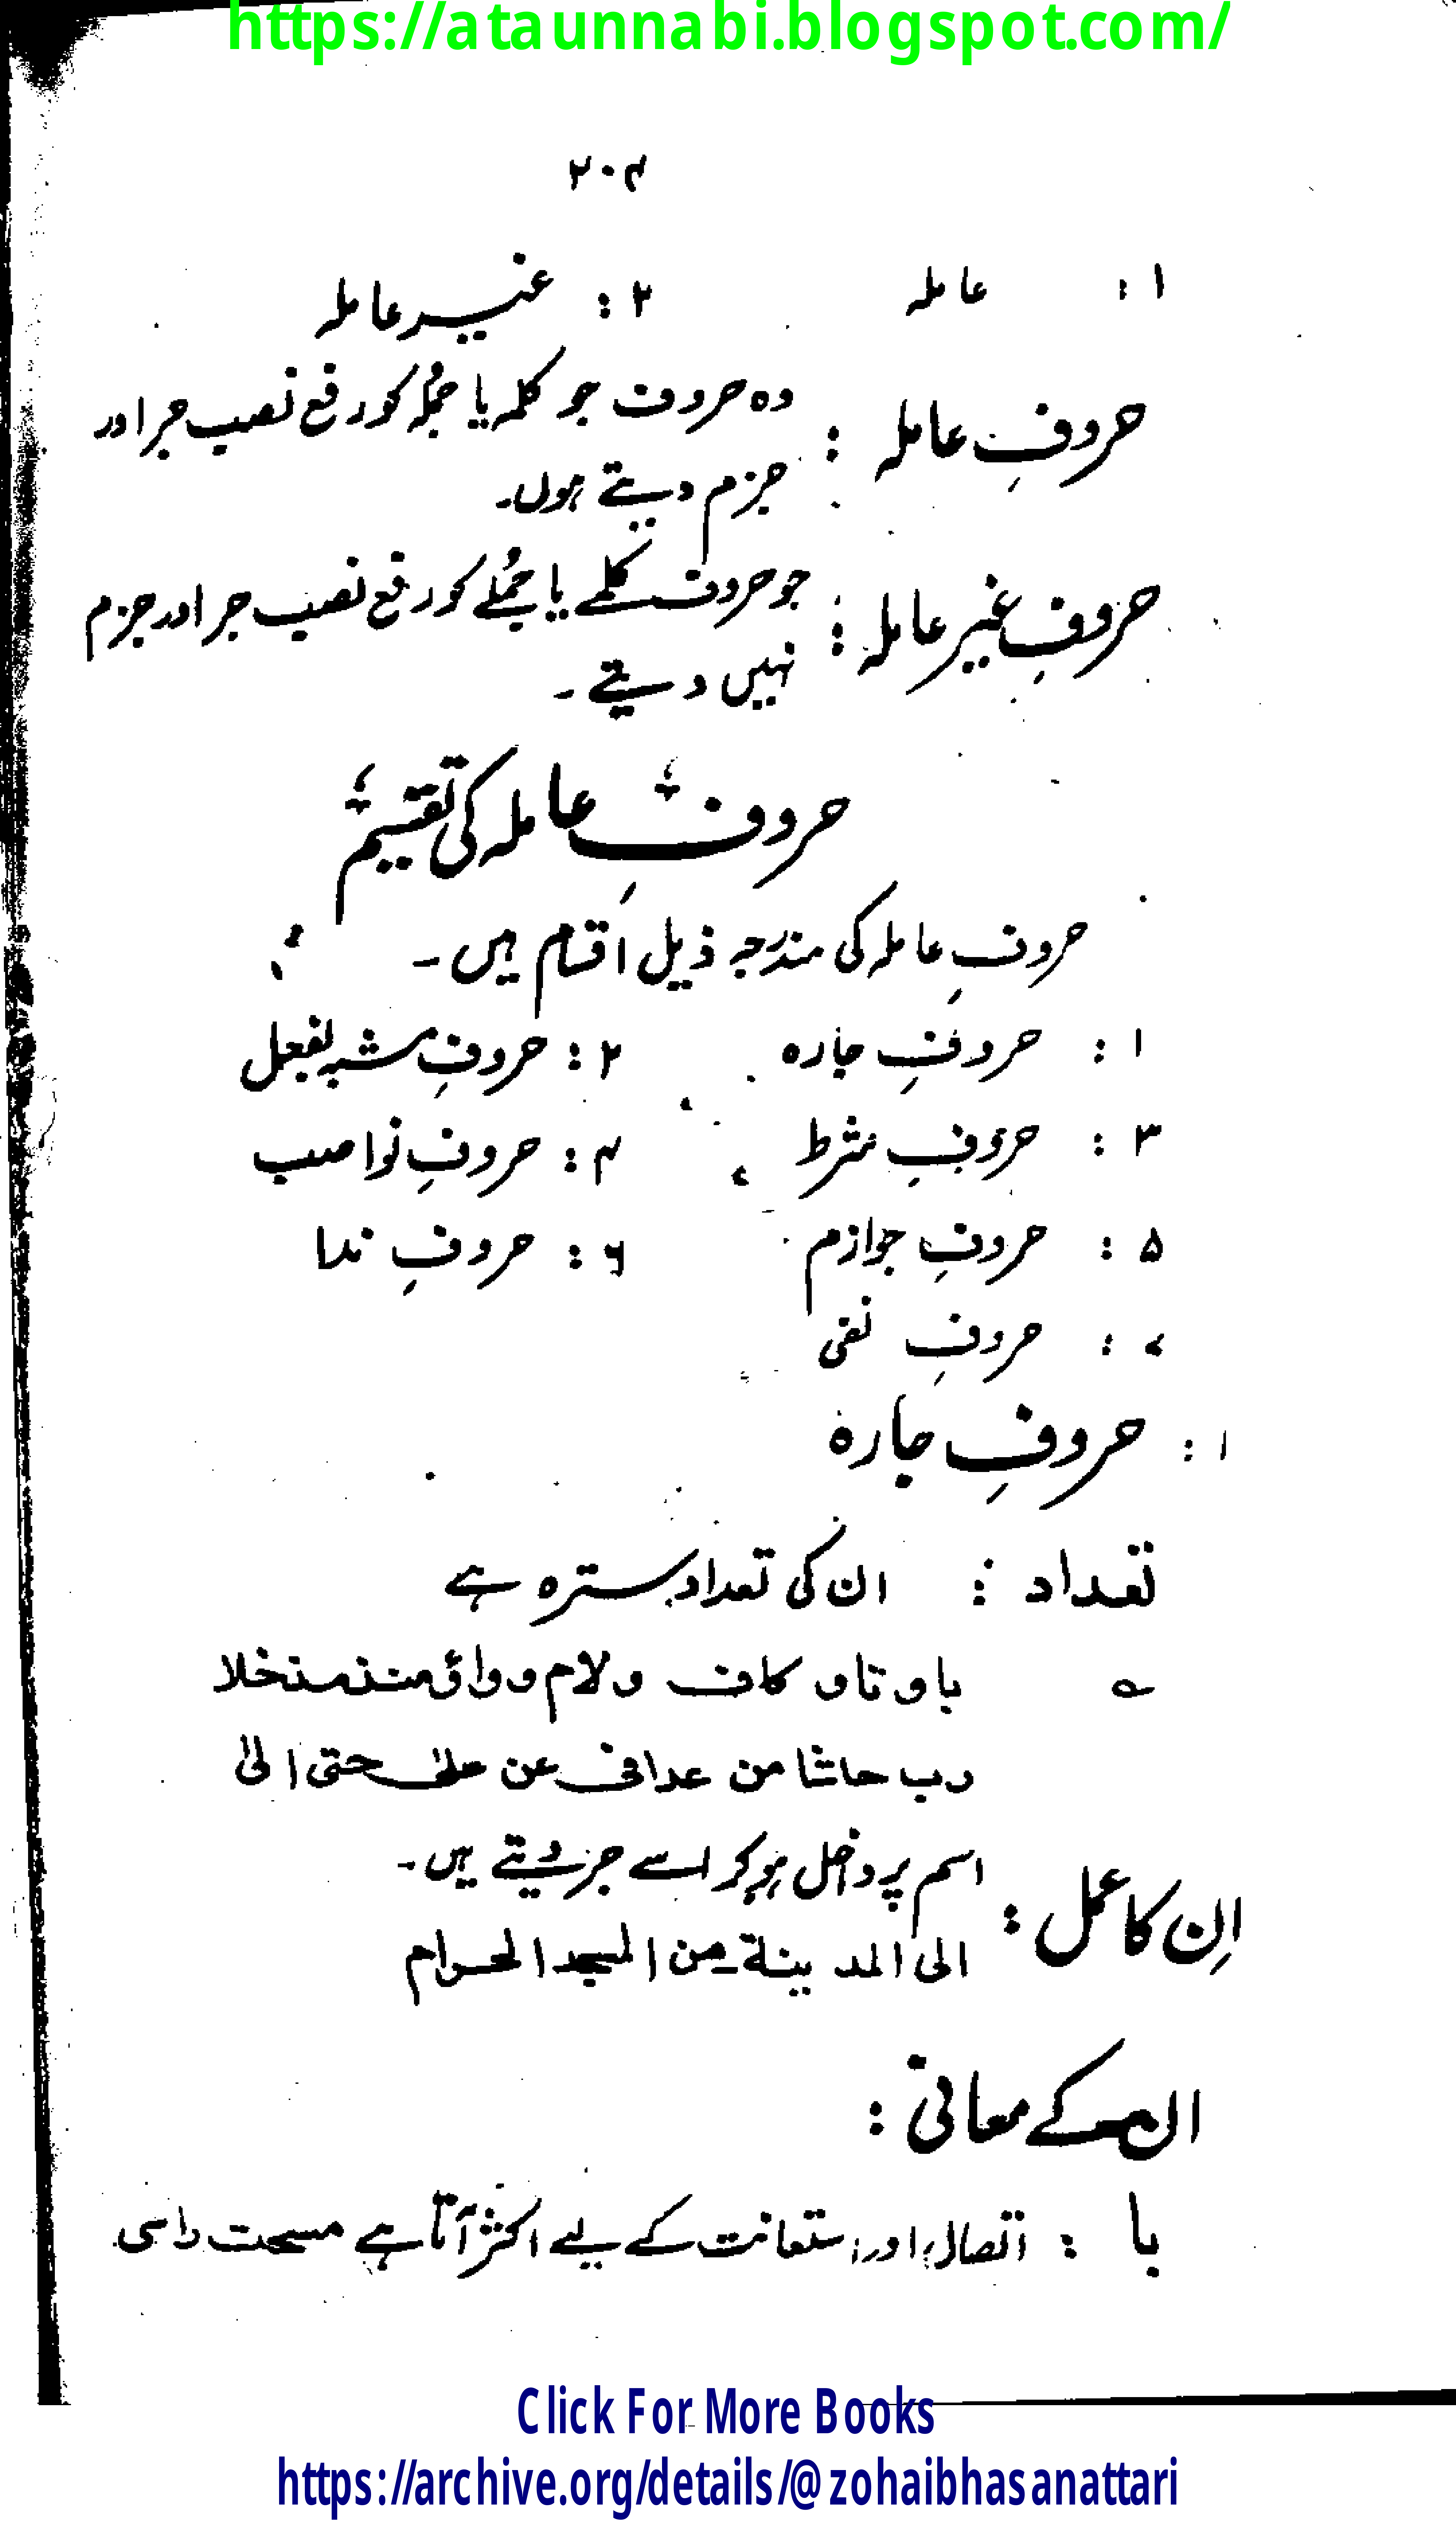 https://ataunnabi.blogspot.com/
۲۰۴
۱: عاملہ ۲: غیر عاملہ
حروفِ عاملہ: وہ حروف جو کلمہ یا جُملہ کو رفع نصب جر اور
جزم دیتے ہوں۔
حروفِ غیر عاملہ: جو حروف کلمے یا جُملے کو رفع نصب جر اور جزم
نہیں دیتے۔
حروفِ عاملہ کی تقسیم
حروفِ عاملہ کی مندرجہ ذیل اقسام ہیں۔
۱: حروفِ جارہ ۲: حروفِ مشبہ بفعل
۳: حروفِ شرط ۴: حروفِ نواصب
۵: حروفِ جوازم ۶: حروفِ ندا
۷: حروفِ نفی
۱: حروفِ جارہ
تعداد: ان کی تعداد سترہ ہے
؎ باو تاو کاف و لام و واؤ منذ مذ خلا
رب حاشا من عدا فی عن علیٰ حتی الیٰ
اِن کا عمل: اسم پر داخل ہو کر اسے جر دیتے ہیں۔
الی المدینة۔ من المسجد الحرام
ان کے معانی:
با: اتصال اور استعانت کے لیے اکثر آتا ہے مسحت راسی
Click For More Books
https://archive.org/details/@zohaibhasanattari